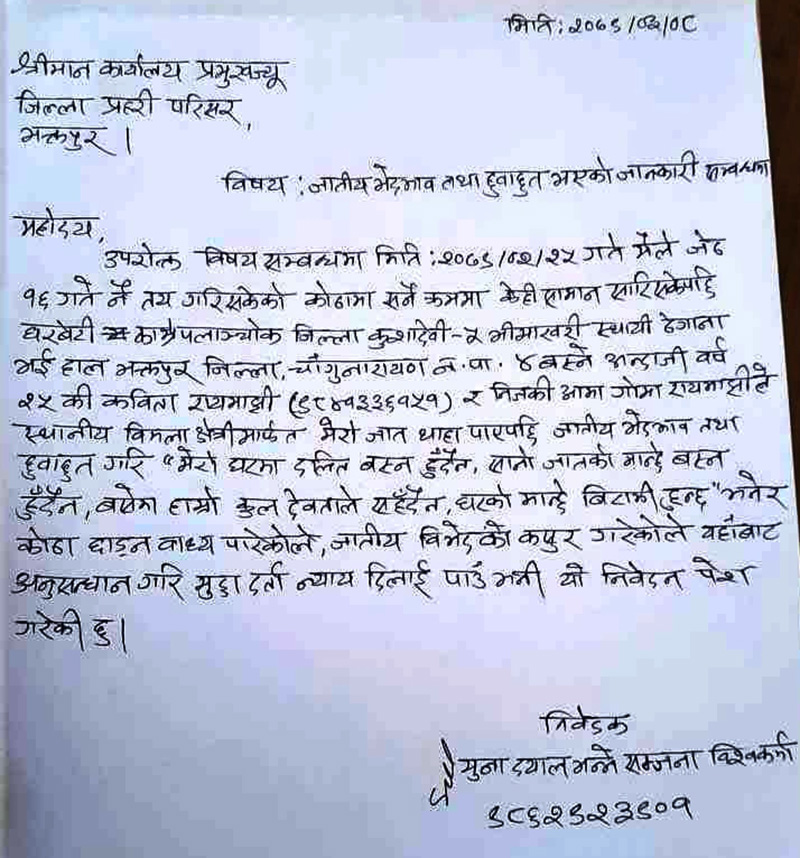 मिति : २०७९/०३/०८
श्रीमान कार्यालय प्रमुखज्यू
जिल्ला प्रहरी परिसर,
भक्तपुर ।
विषय : जातीय भेदभाव तथा छुवाछुत भएको जानकारी सम्बन्धमा
महोदय,
उपरोक्त विषय सम्बन्धमा मिति : २०७९/०२/२५ गते मैले जेठ
१६ गते नै तय गरिसकेको कोठामा सर्ने क्रममा केही सामान सारिसकेपछि
घरबेटी काभ्रेपलाञ्चोक जिल्ला कुशादेवी-५ भीमाखरी स्थायी ठेगाना
भई हाल भक्तपुर जिल्ला, चाँगुनारायण न.पा. ४ बस्ने अन्दाजी वर्ष
२५ की कविता रायमाझी (९८४१३३६१५१) र निजकी आमा गोमा रायमाझीले
स्थानीय विमला क्षेत्रीमार्फत मेरो जात थाहा पाएपछि जातीय भेदभाव तथा
छुवाछुत गरि "मेरो घरमा दलित बस्न हुँदैन, सानो जातको मान्छे बस्न
हुँदैन, बसेमा हाम्रो कुल देवताले सहँदैन, घरको मान्छे बिरामी हुन्छ" भनेर
कोठा छाड्न वाध्य पारेकोले, जातीय विभेदको कसुर गरेकोले यहाँबाट
अनुसन्धान गरि मुद्दा दर्ता न्याय दिलाई पाउँ भनी यो निवेदन पेश
गरेकी छु ।
निवेदक
मुना दयाल भन्ने सम्जना विश्वकर्मा
९८६२९२३९०१